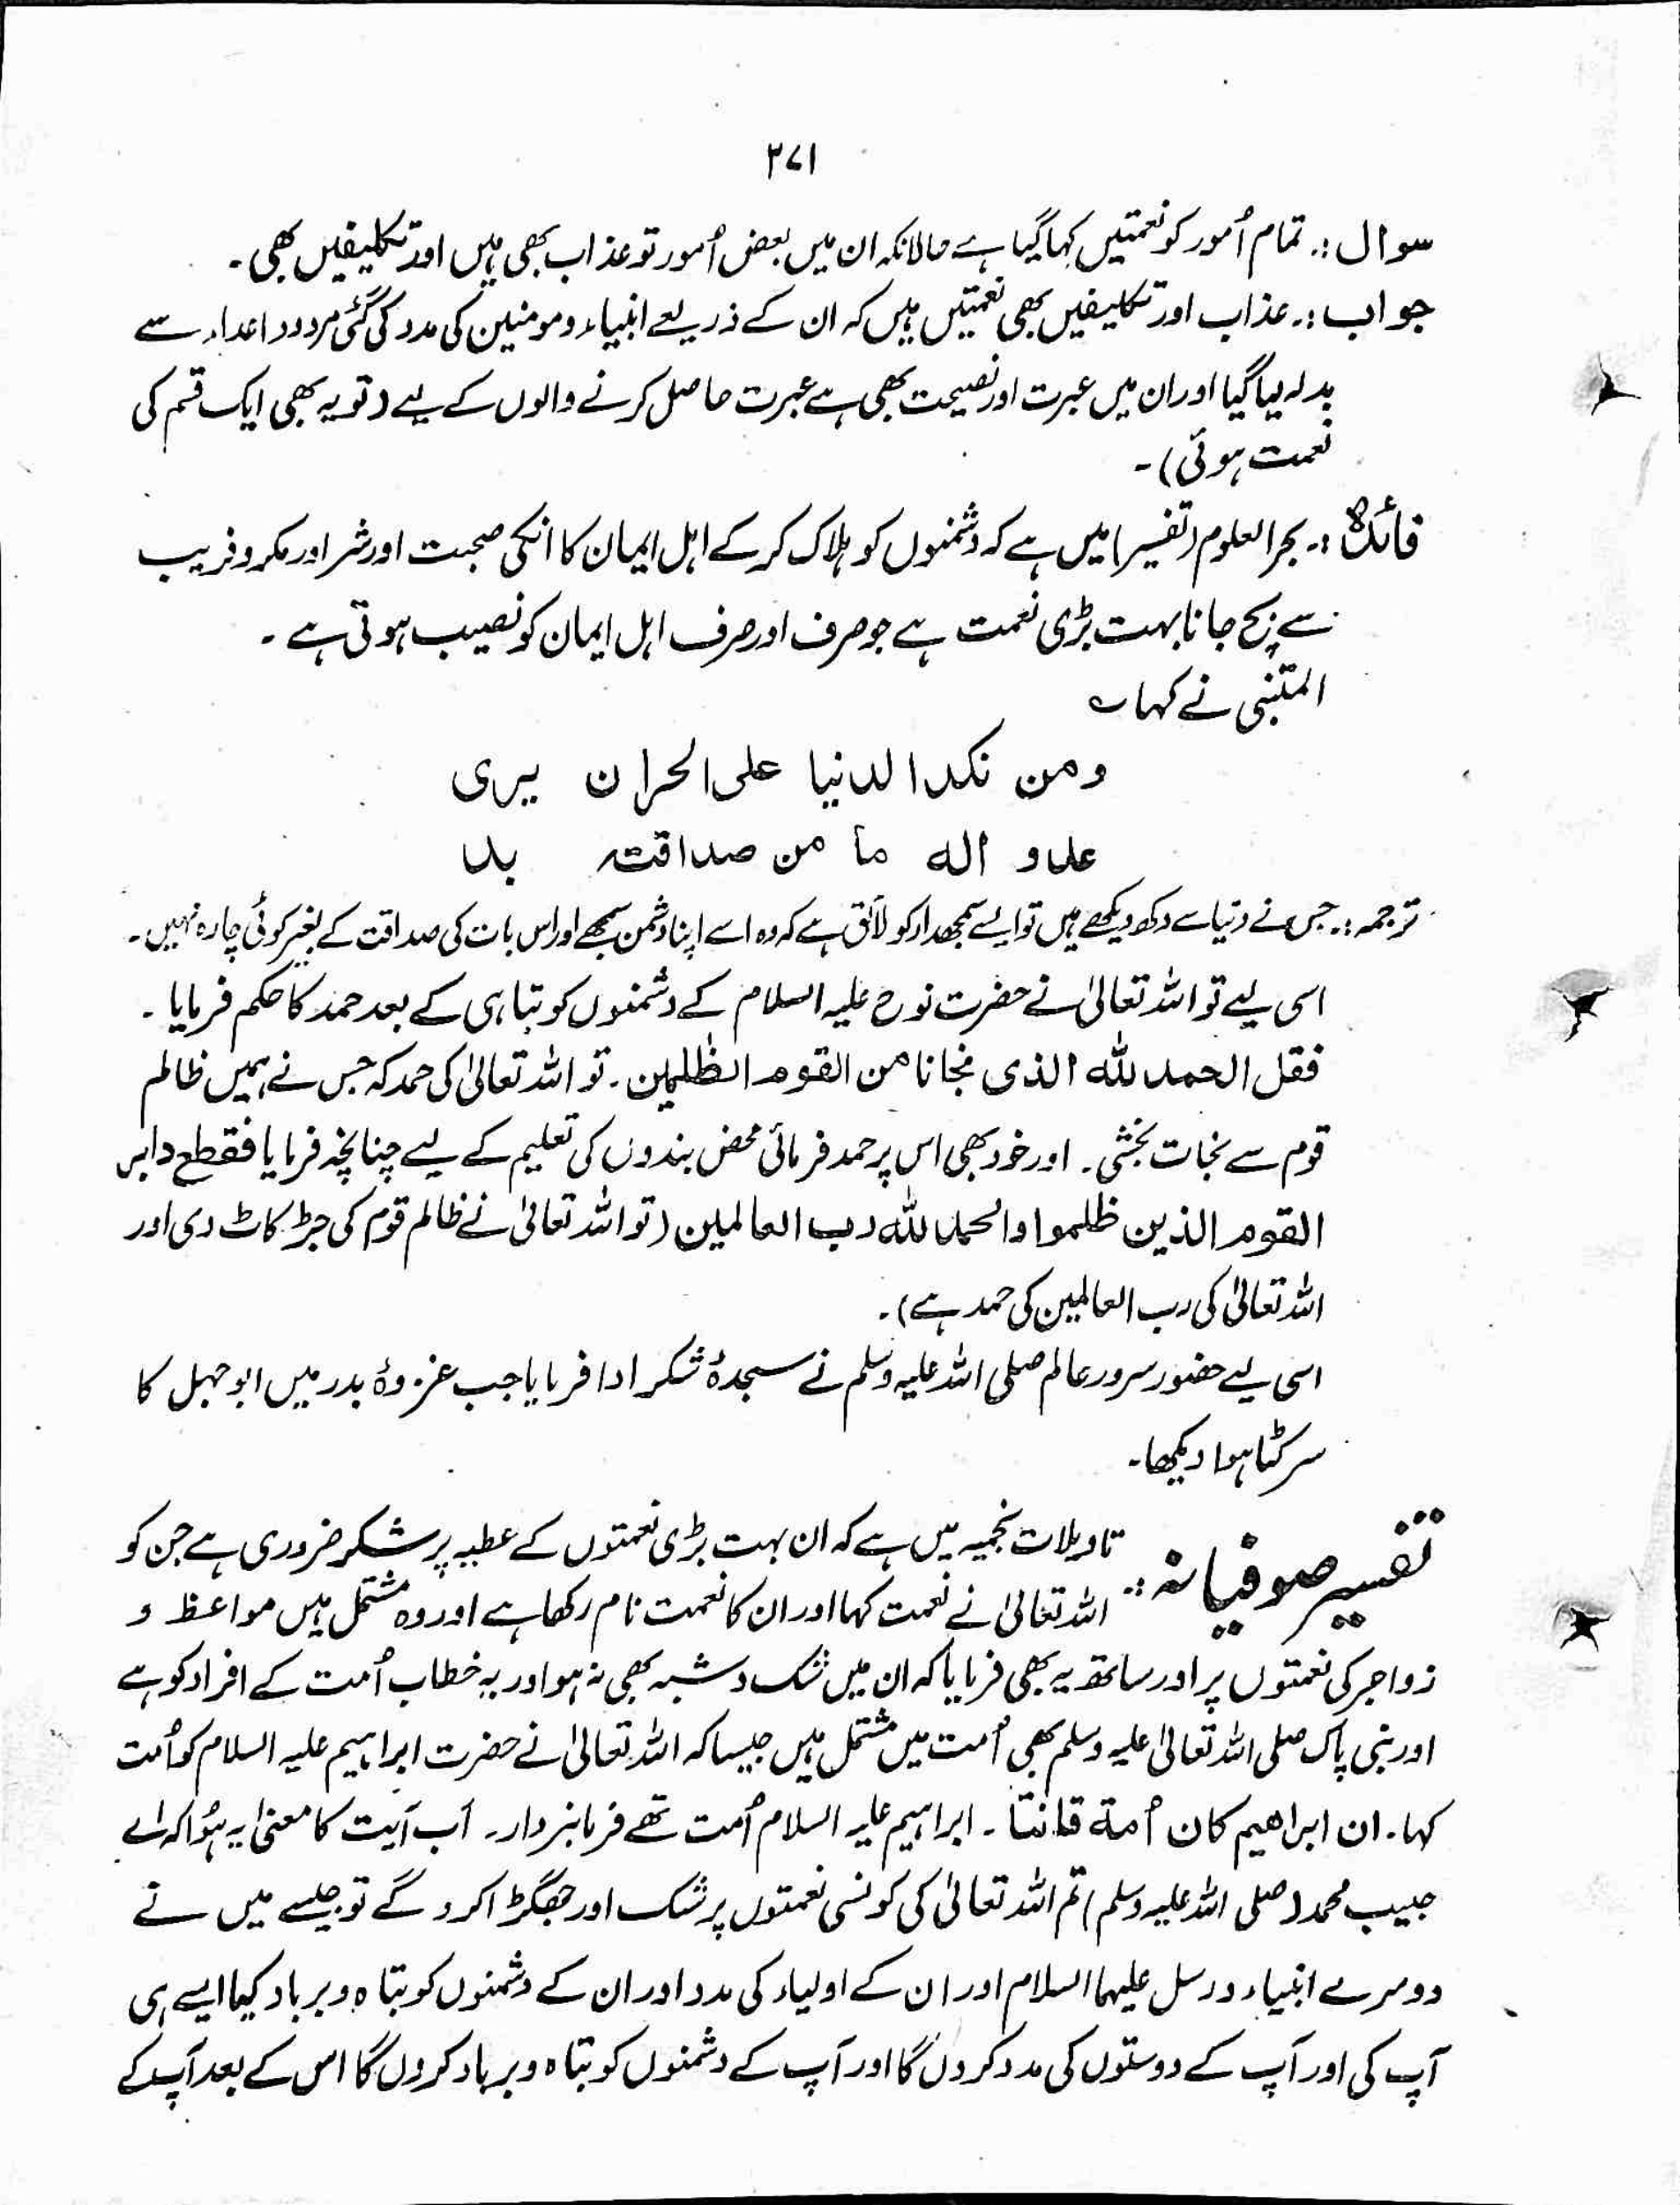 ۲۷۱
سوال :. تمام اُمور کو نعمتیں کہا گیا ہے حالانکہ ان میں بعض اُمور تو عذاب بھی ہیں اور تکلیفیں بھی ۔
جواب :. عذاب اور تکلیفیں بھی نعمتیں ہیں کہ ان کے ذریعے انبیاء و مومنین کی مدد کی گئی مردود اعداء سے
بدلہ لیا گیا اور ان میں عبرت اور نصیحت بھی ہے عبرت حاصل کرنے والوں کے لیے (تو یہ بھی ایک قسم کی
نعمت ہوئی) ۔
فائدہ :. بحر العلوم (تفسیر) میں ہے کہ دشمنوں کو ہلاک کر کے اہل ایمان کا انکی صحبت اور شر اور مکر و فریب
سے بچ جانا بہت بڑی نعمت ہے جو صرف اور صرف اہل ایمان کو نصیب ہوتی ہے ۔
المتنبی نے کہا ؎
ومن نکد الدنیا علی الحر ان یری
عدوا له ما من صداقتہ بد
ترجمہ :. جس نے دنیا سے دکھ دیکھے ہیں تو ایسے سمجھدار کو لائق ہے کہ وہ اسے اپنا دشمن سمجھے اور اس بات کی صداقت کے بغیر کوئی چارہ نہیں ۔
اسی لیے تو اللہ تعالیٰ نے حضرت نوح علیہ السلام کے دشمنوں کو تباہی کے بعد حمد کا حکم فرمایا ۔
فقل الحمد للہ الذی نجانا من القوم الظٰلمین ۔ تو اللہ تعالیٰ کی حمد کہ جس نے ہمیں ظالم
قوم سے نجات بخشی ۔ اور خود بھی اس پر حمد فرمائی محض بندوں کی تعلیم کے لیے چنانچہ فرمایا فقطع دابر
القوم الذین ظلموا والحمد للہ رب العالمین (تو اللہ تعالیٰ نے ظالم قوم کی جڑ کاٹ دی اور
اللہ تعالیٰ کی رب العالمین کی حمد ہے) ۔
اسی لیے حضور سرور عالم صلی اللہ علیہ وسلم نے سجدۂ شکر ادا فرمایا جب غزوۂ بدر میں ابو جہل کا
سر کٹا ہوا دیکھا ۔
تفسیر صوفیانہ :. تاویلات نجمیہ میں ہے کہ ان بہت بڑی نعمتوں کے عطیہ پر شکر ضروری ہے جن کو
اللہ تعالیٰ نے نعمت کہا اور ان کا نعمت نام رکھا ہے اور وہ مشتمل ہیں مواعظ و
زواجر کی نعمتوں پر اور ساتھ یہ بھی فرمایا کہ ان میں شک و شبہ بھی نہ ہو اور یہ خطاب اُمت کے افراد کو ہے
اور نبی پاک صلی اللہ تعالیٰ علیہ وسلم بھی اُمت میں مشتمل ہیں جیسا کہ اللہ تعالیٰ نے حضرت ابراہیم علیہ السلام کو اُمت
کہا ۔ ان ابراھیم کان اُمۃ قانتا ۔ ابراہیم علیہ السلام اُمت تھے فرمانبردار ۔ اب آیت کا معنیٰ یہ ہُوا کہ اے
حبیب محمد (صلی اللہ علیہ وسلم) تم اللہ تعالیٰ کی کونسی نعمتوں پر شک اور جھگڑا کرو گے تو جیسے میں نے
دوسرے انبیاء و رسل علیہما السلام اور ان کے اولیاء کی مدد اور ان کے دشمنوں کو تباہ و برباد کیا ایسے ہی
آپ کی اور آپ کے دوستوں کی مدد کروں گا اور آپ کے دشمنوں کو تباہ و برباد کروں گا اس کے بعد آپ کے